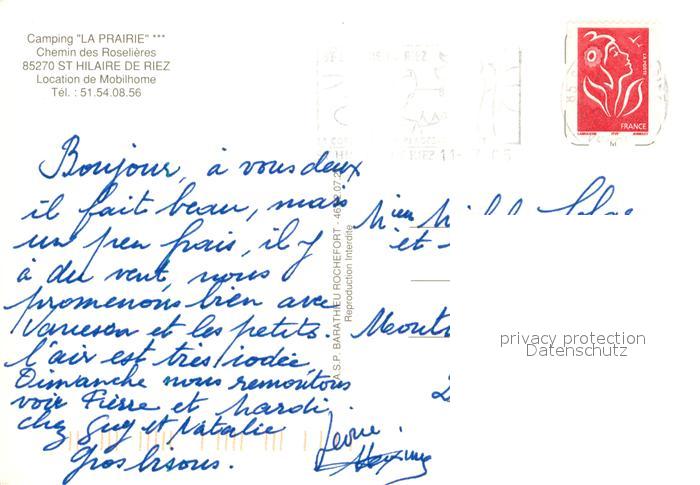 Camping "LA PRAIRIE" ***
Chemin des Roselières
85270 ST HILAIRE DE RIEZ
Location de Mobilhome
Tél. : 51.54.08.56
LA POSTE
FRANCE
Bonjour, à vous deux
il fait beau, mais
un peu frais, il y
à du vent, nous
promenons bien avec
Vanesson et les petits.
l'air est très iodée
Dimanche nous remontons
voir Pierre et mardi
chez Guy et Natalie
Gros bisous.
A.S.P. BARATHIEU ROCHEFORT - 46
Reproduction Interdite
et
privacy protection
Datenschutz